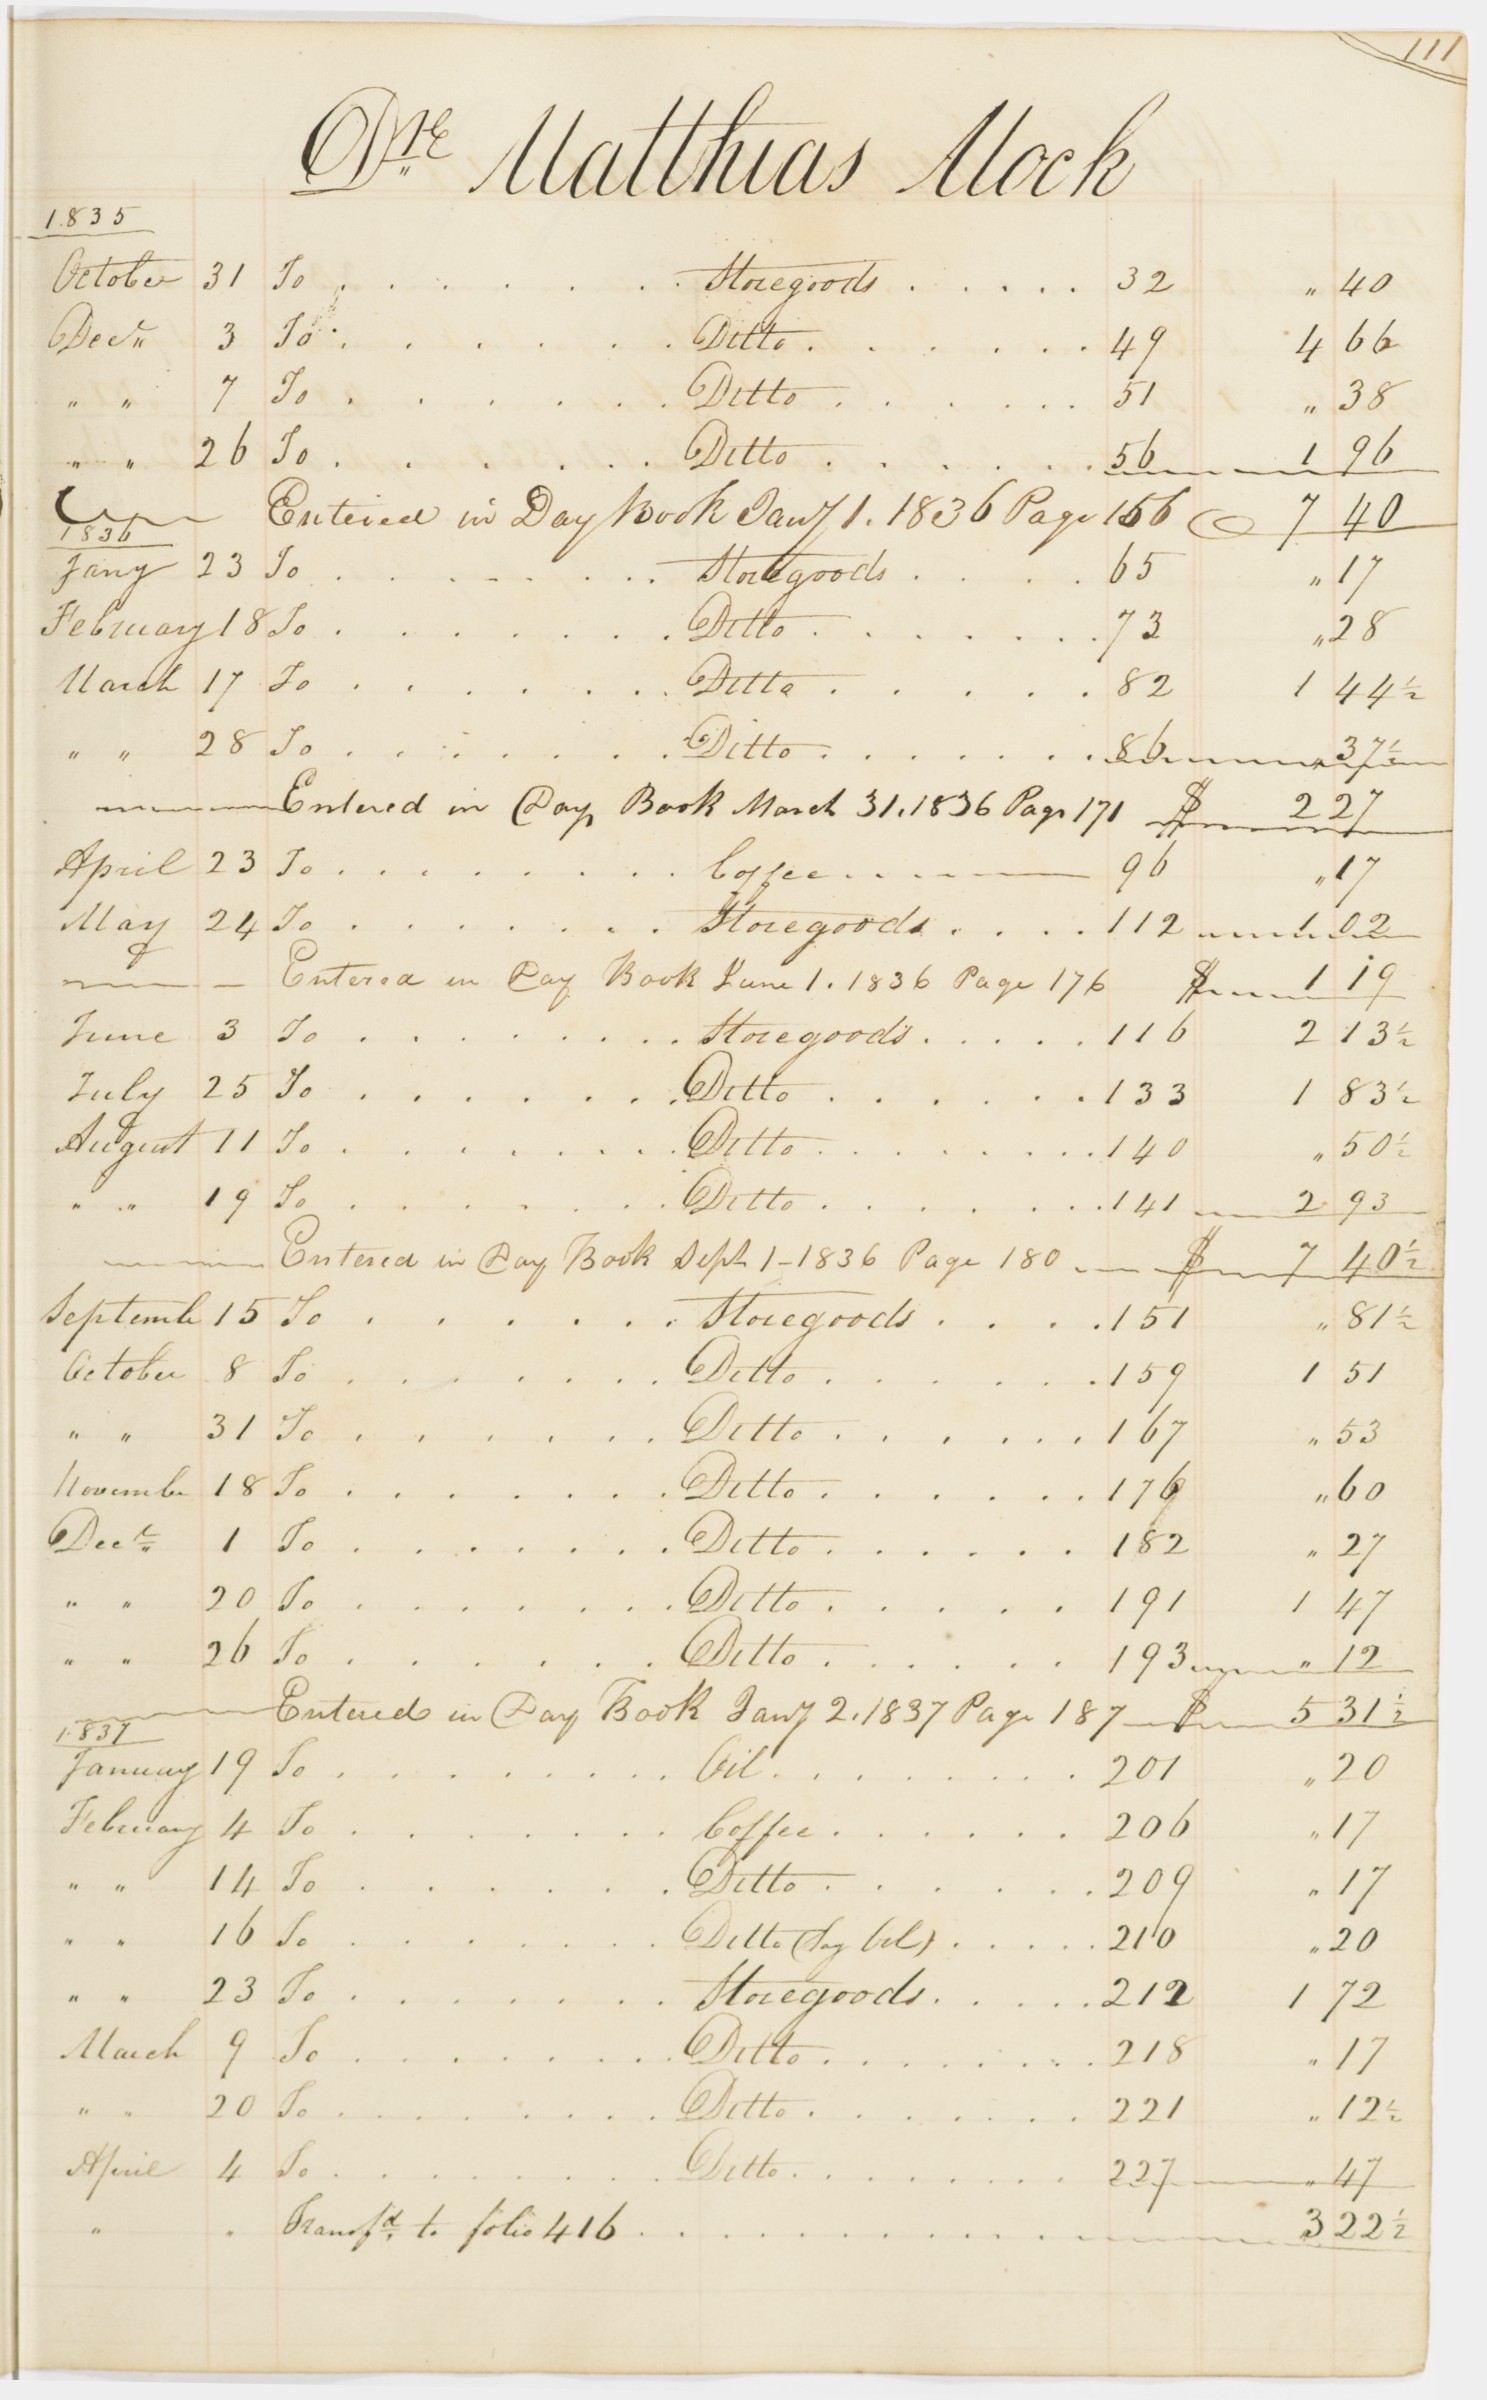 111
Dre Matthias Mock
1835
October 31 To . . . . . . . Storegoods . . . . . 32 " 40
Decr 3 To . . . . . . . Ditto . . . . . . 49 4 66
" " 7 To . . . . . . . Ditto . . . . . . 51 " 38
" " 26 To . . . . . . . Ditto . . . . . . 56 1 96
Entered in Day Book Jany 1. 1836 Page 156 7 40
1836
Jany 23 To . . . . . . . Storegoods . . . . 65 " 17
February 18 To . . . . . . . Ditto . . . . . . 73 " 28
March 17 To . . . . . . . Ditto . . . . . . 82 1 44½
" " 28 To . . . . . . . Ditto . . . . . . 86 " 37½
Entered in Day Book March 31. 1836 Page 171 $ 2 27
April 23 To . . . . . . . Coffee . . . 96 " 17
May 24 To . . . . . . . Storegoods . . . . 112 1 02
Entered in Day Book June 1. 1836 Page 176 $ 1 19
June 3 To . . . . . . . Storegoods . . . . . 116 2 13½
July 25 To . . . . . . . Ditto . . . . . . 133 1 83½
August 11 To . . . . . . . Ditto . . . . . . 140 " 50½
" " 19 To . . . . . . . Ditto . . . . . . 141 2 93
Entered in Day Book Sept 1 - 1836 Page 180 $ 7 40½
Septembr 15 To . . . . . . . Storegoods . . . . 151 " 81½
October 8 To . . . . . . . Ditto . . . . . . 159 1 51
" " 31 To . . . . . . . Ditto . . . . . . 167 " 53
Novembr 18 To . . . . . . . Ditto . . . . . . 176 " 60
Decr 1 To . . . . . . . Ditto . . . . . . 182 " 27
" " 20 To . . . . . . . Ditto . . . . . 191 1 47
" " 26 To . . . . . . . Ditto . . . . . 193 " 12
Entered in Day Book Jany 2. 1837 Page 187 $ 5 31½
1837
January 19 To . . . . . . . Oil . . . . . . . 201 " 20
February 4 To . . . . . . . Coffee . . . . . . 206 " 17
" " 14 To . . . . . . . Ditto . . . . . . 209 " 17
" " 16 To . . . . . . . Ditto (say Oil) . . . . . 210 " 20
" " 23 To . . . . . . . Storegoods . . . . . 212 1 72
March 9 To . . . . . . . Ditto . . . . . . . 218 " 17
" " 20 To . . . . . . . Ditto . . . . . . 221 " 12½
April 4 To . . . . . . . Ditto . . . . . . . 227 " 47
" " Transfd to folio 416 . . . . . . . . . 3 22½